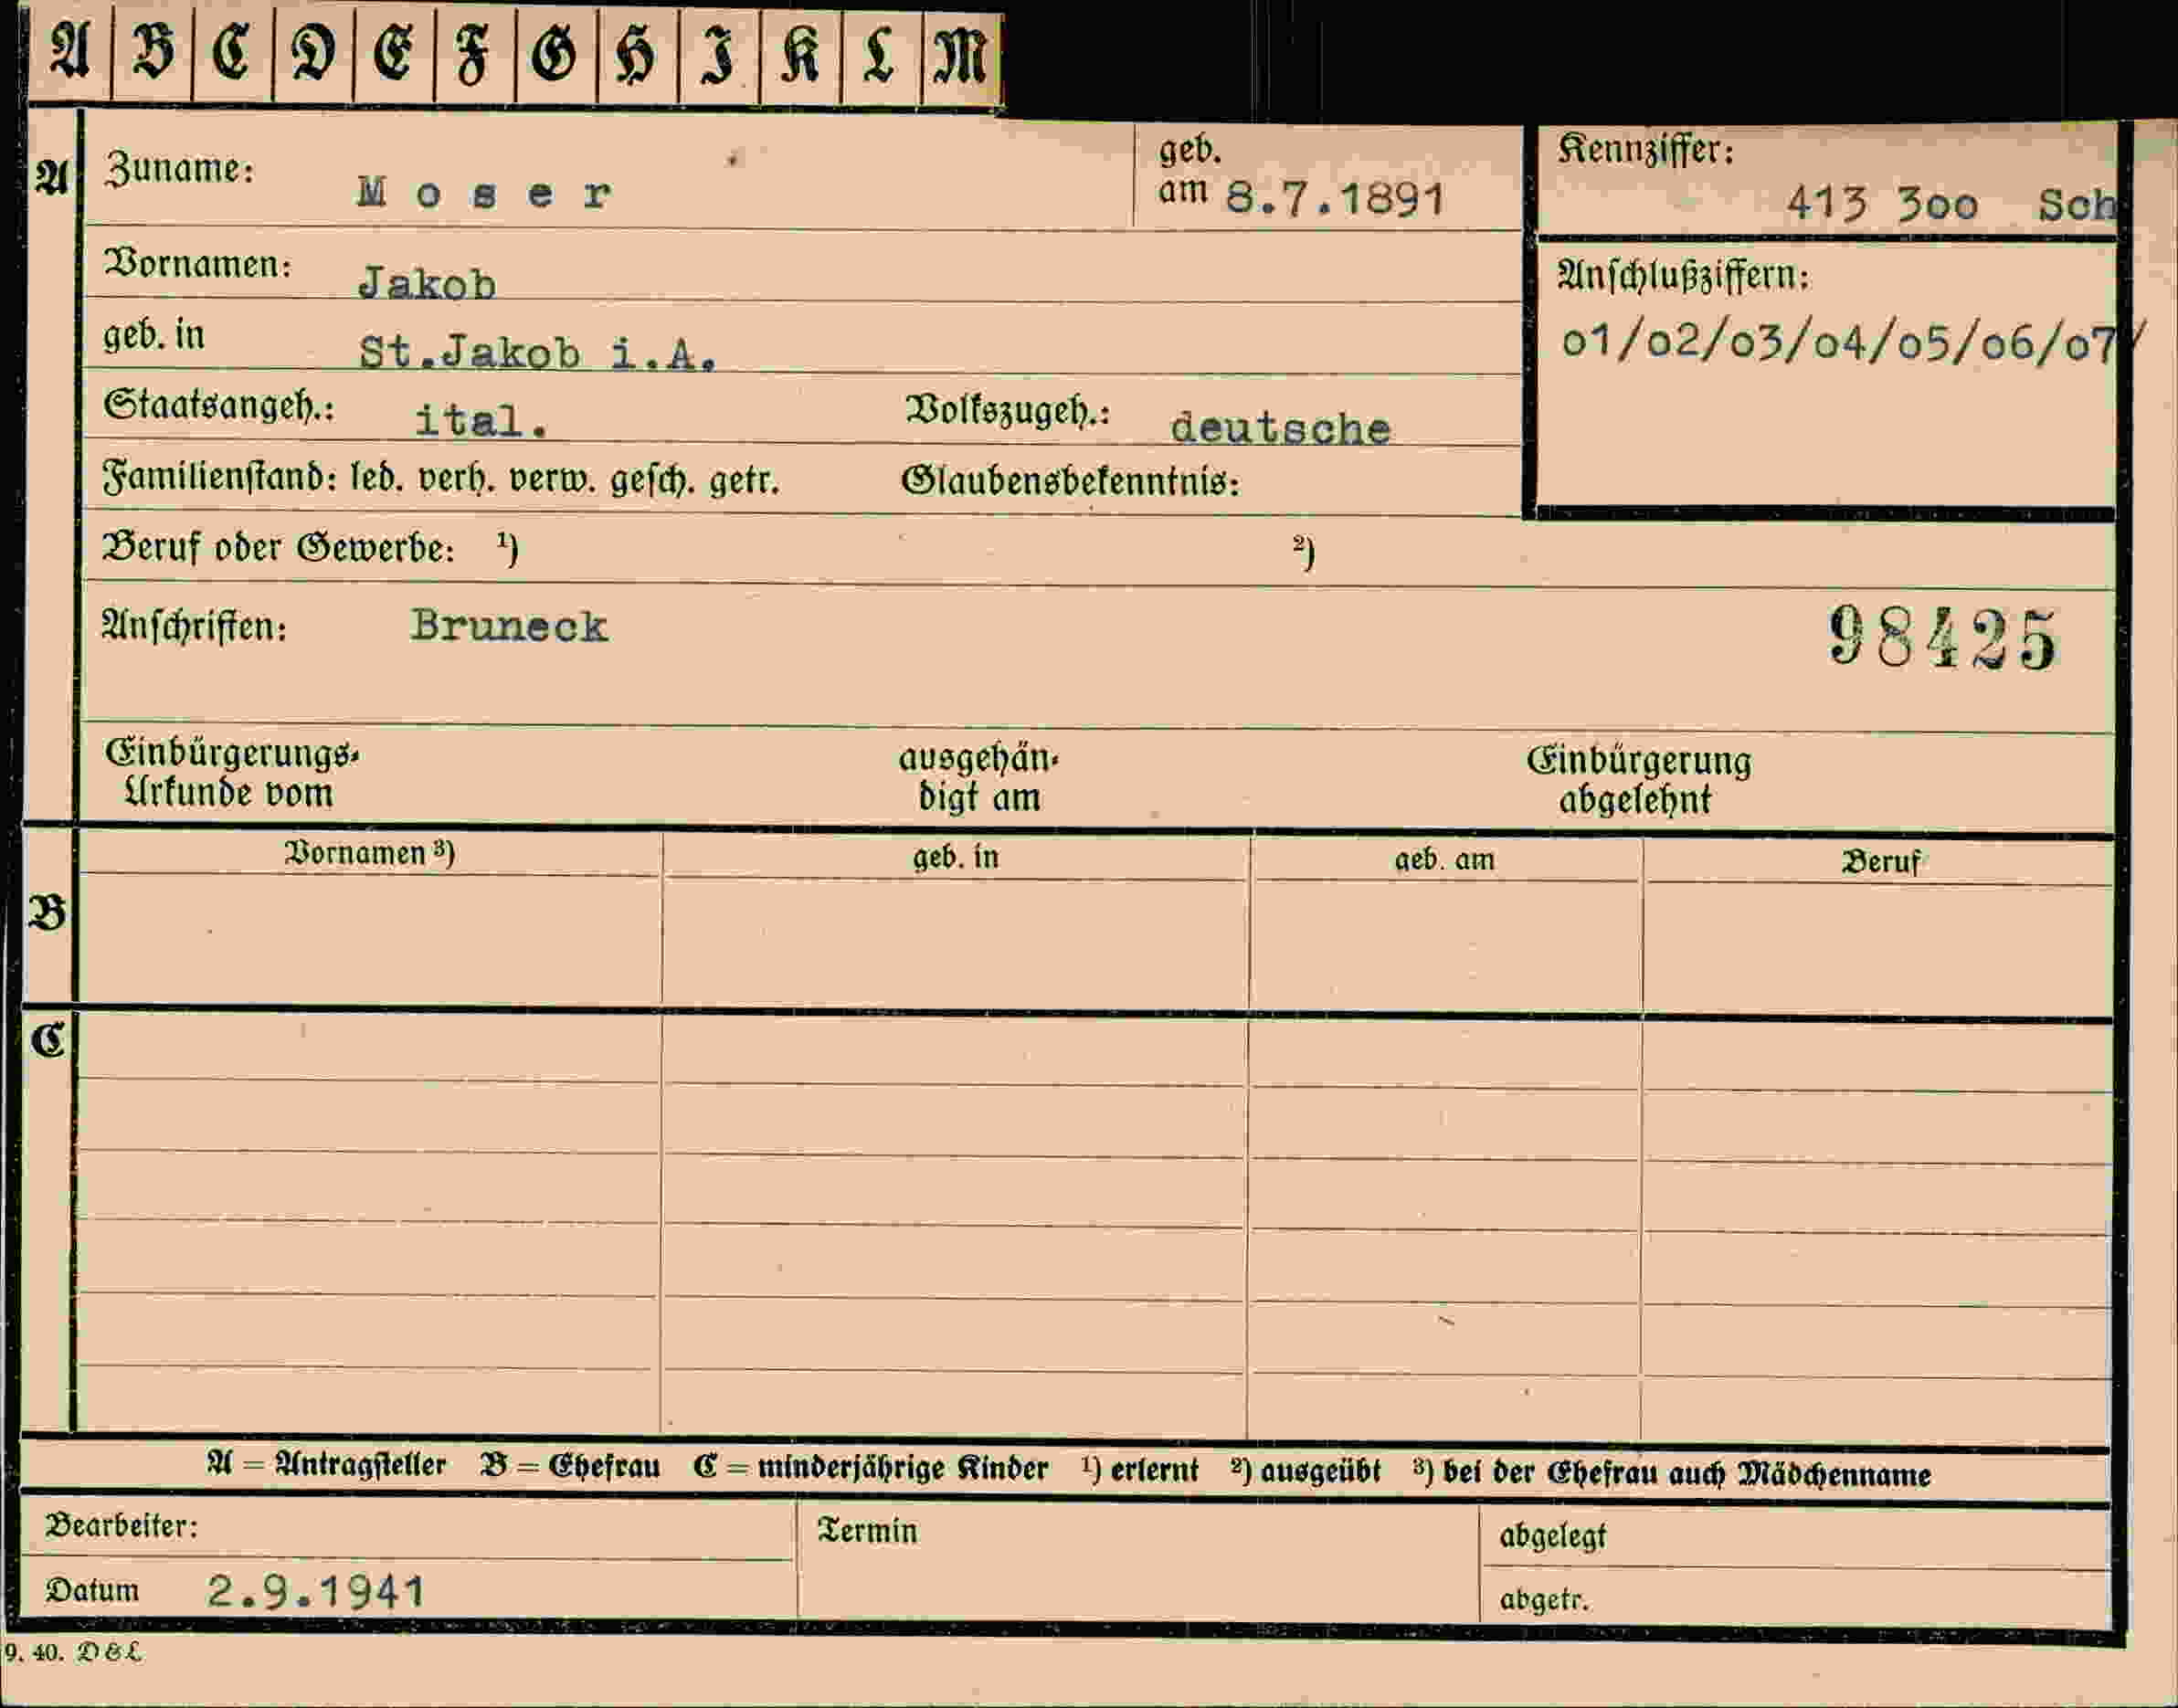 A B C D E F G H I K L M
A Zuname: Moser geb. am 8.7.1891 Kennziffer: 413 3oo Sch
Vornamen: Jakob Anschlußziffern:
geb. in St.Jakob i.A. o1/o2/o3/o4/o5/o6/o7/
Staatsangeh.: ital. Volkszugeh.: deutsche
Familienstand: led. verh. verw. gesch. getr. Glaubensbekenntnis:
Beruf oder Gewerbe: ¹) ²)
Anschriften: Bruneck 98425
Einbürgerungs- ausgehän- Einbürgerung
Urkunde vom digt am abgelehnt
Vornamen ³) geb. in geb. am Beruf
B
C
A = Antragsteller B = Ehefrau C = minderjährige Kinder ¹) erlernt ²) ausgeübt ³) bei der Ehefrau auch Mädchenname
Bearbeiter: Termin abgelegt
Datum 2.9.1941 abgetr.
9. 40. D & L